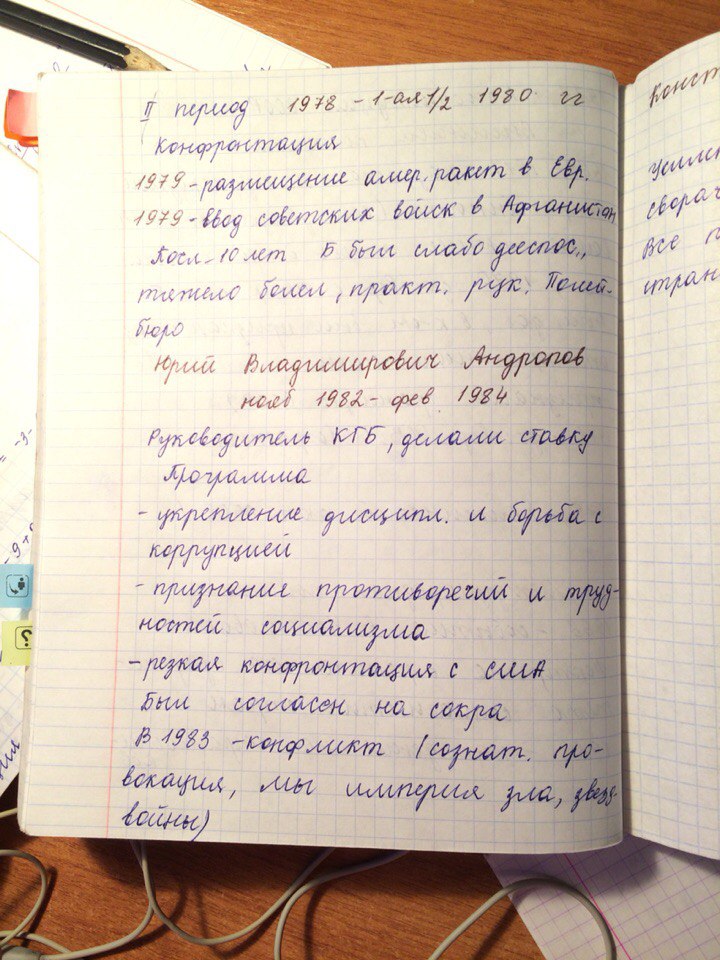 II период 1978 - 1-ая 1/2 1980 гг
конфронтация
1979 - размещение амер. ракет в Евр.
1979 - ввод советских войск в Афганистан
Посл. 10 лет Б был слабо дееспос.,
тяжело болел, практ. рук. Полит-
бюро
Юрий Владимирович Андропов
нояб 1982 - фев 1984
Руководитель КГБ, делали ставку
Программа
- укрепление дисципл. и борьба с
коррупцией
- признание противоречий и труд-
ностей социализма
- резкая конфронтация с США
Был согласен на сокра
В 1983 - конфликт (сознат. про-
вокация, мы империя зла, звезд
войны)
Конст
Усилен
сворач
Все п
стран
-3-
-9+
?